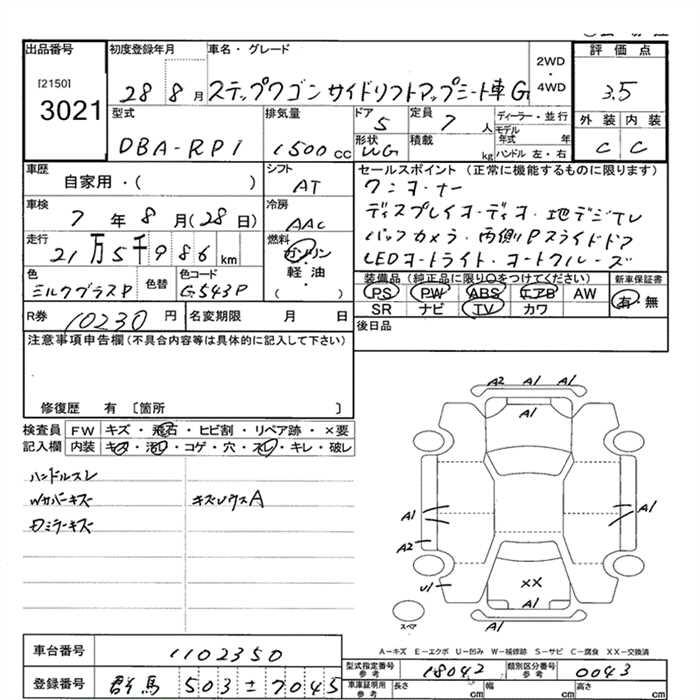 出品番号
[2150]
3021
初度登録年月
28 8月
車名・グレード
ステップワゴン サイドリフトアップシート車 G
2WD
・
4WD
評価点
3.5
外装 内装
C C
型式
DBA-RP1
排気量
1500cc
ドア
5
形状
WG
定員
7人
積載
kg
ディーラー・並行
モデル年式 年
ハンドル 左・右
車歴
自家用・( )
シフト
AT
車検
7年8月(28日)
冷房
AAC
走行
21万5千986km
燃料
ガソリン
・
軽油
・
( )
色
ミルクグラスP
色替
色コード
G543P
R券
10230円
名変期限 月 日
セールスポイント (正常に機能するものに限ります)
ワンオーナー
ディスプレイオーディオ・地デジTV
バックカメラ・両側Pスライドドア
LEDオートライト・オートクルーズ
装備品 (純正品に限り○をつけてください)
PS PW ABS エアB AW
SR ナビ TV カワ
新車保証書
有・無
後日品
注意事項申告欄(不具合内容等は具体的に記入して下さい)
修復歴 有〔箇所 〕
検査員記入欄
FW キズ・飛石・ヒビ割・リペア跡・×要
内装 キズ・汚れ・コゲ・穴・スレ・キレ・破レ
ハンドルスレ
Wカバーキズ
キズレウスA
ミラーキズ
A2 A1 A1
A1
A1
A1
A2
U1
XX
A1
スペア
A-キズ E-エクボ U-凹み W-補修跡 S-サビ C-腐食 XX-交換済
車台番号
1102350
登録番号
群馬 503 ± 7045
型式指定番号
参考
18042
類別区分番号
参考
0043
車庫証明用
参考
長さ cm
幅 cm
高さ cm